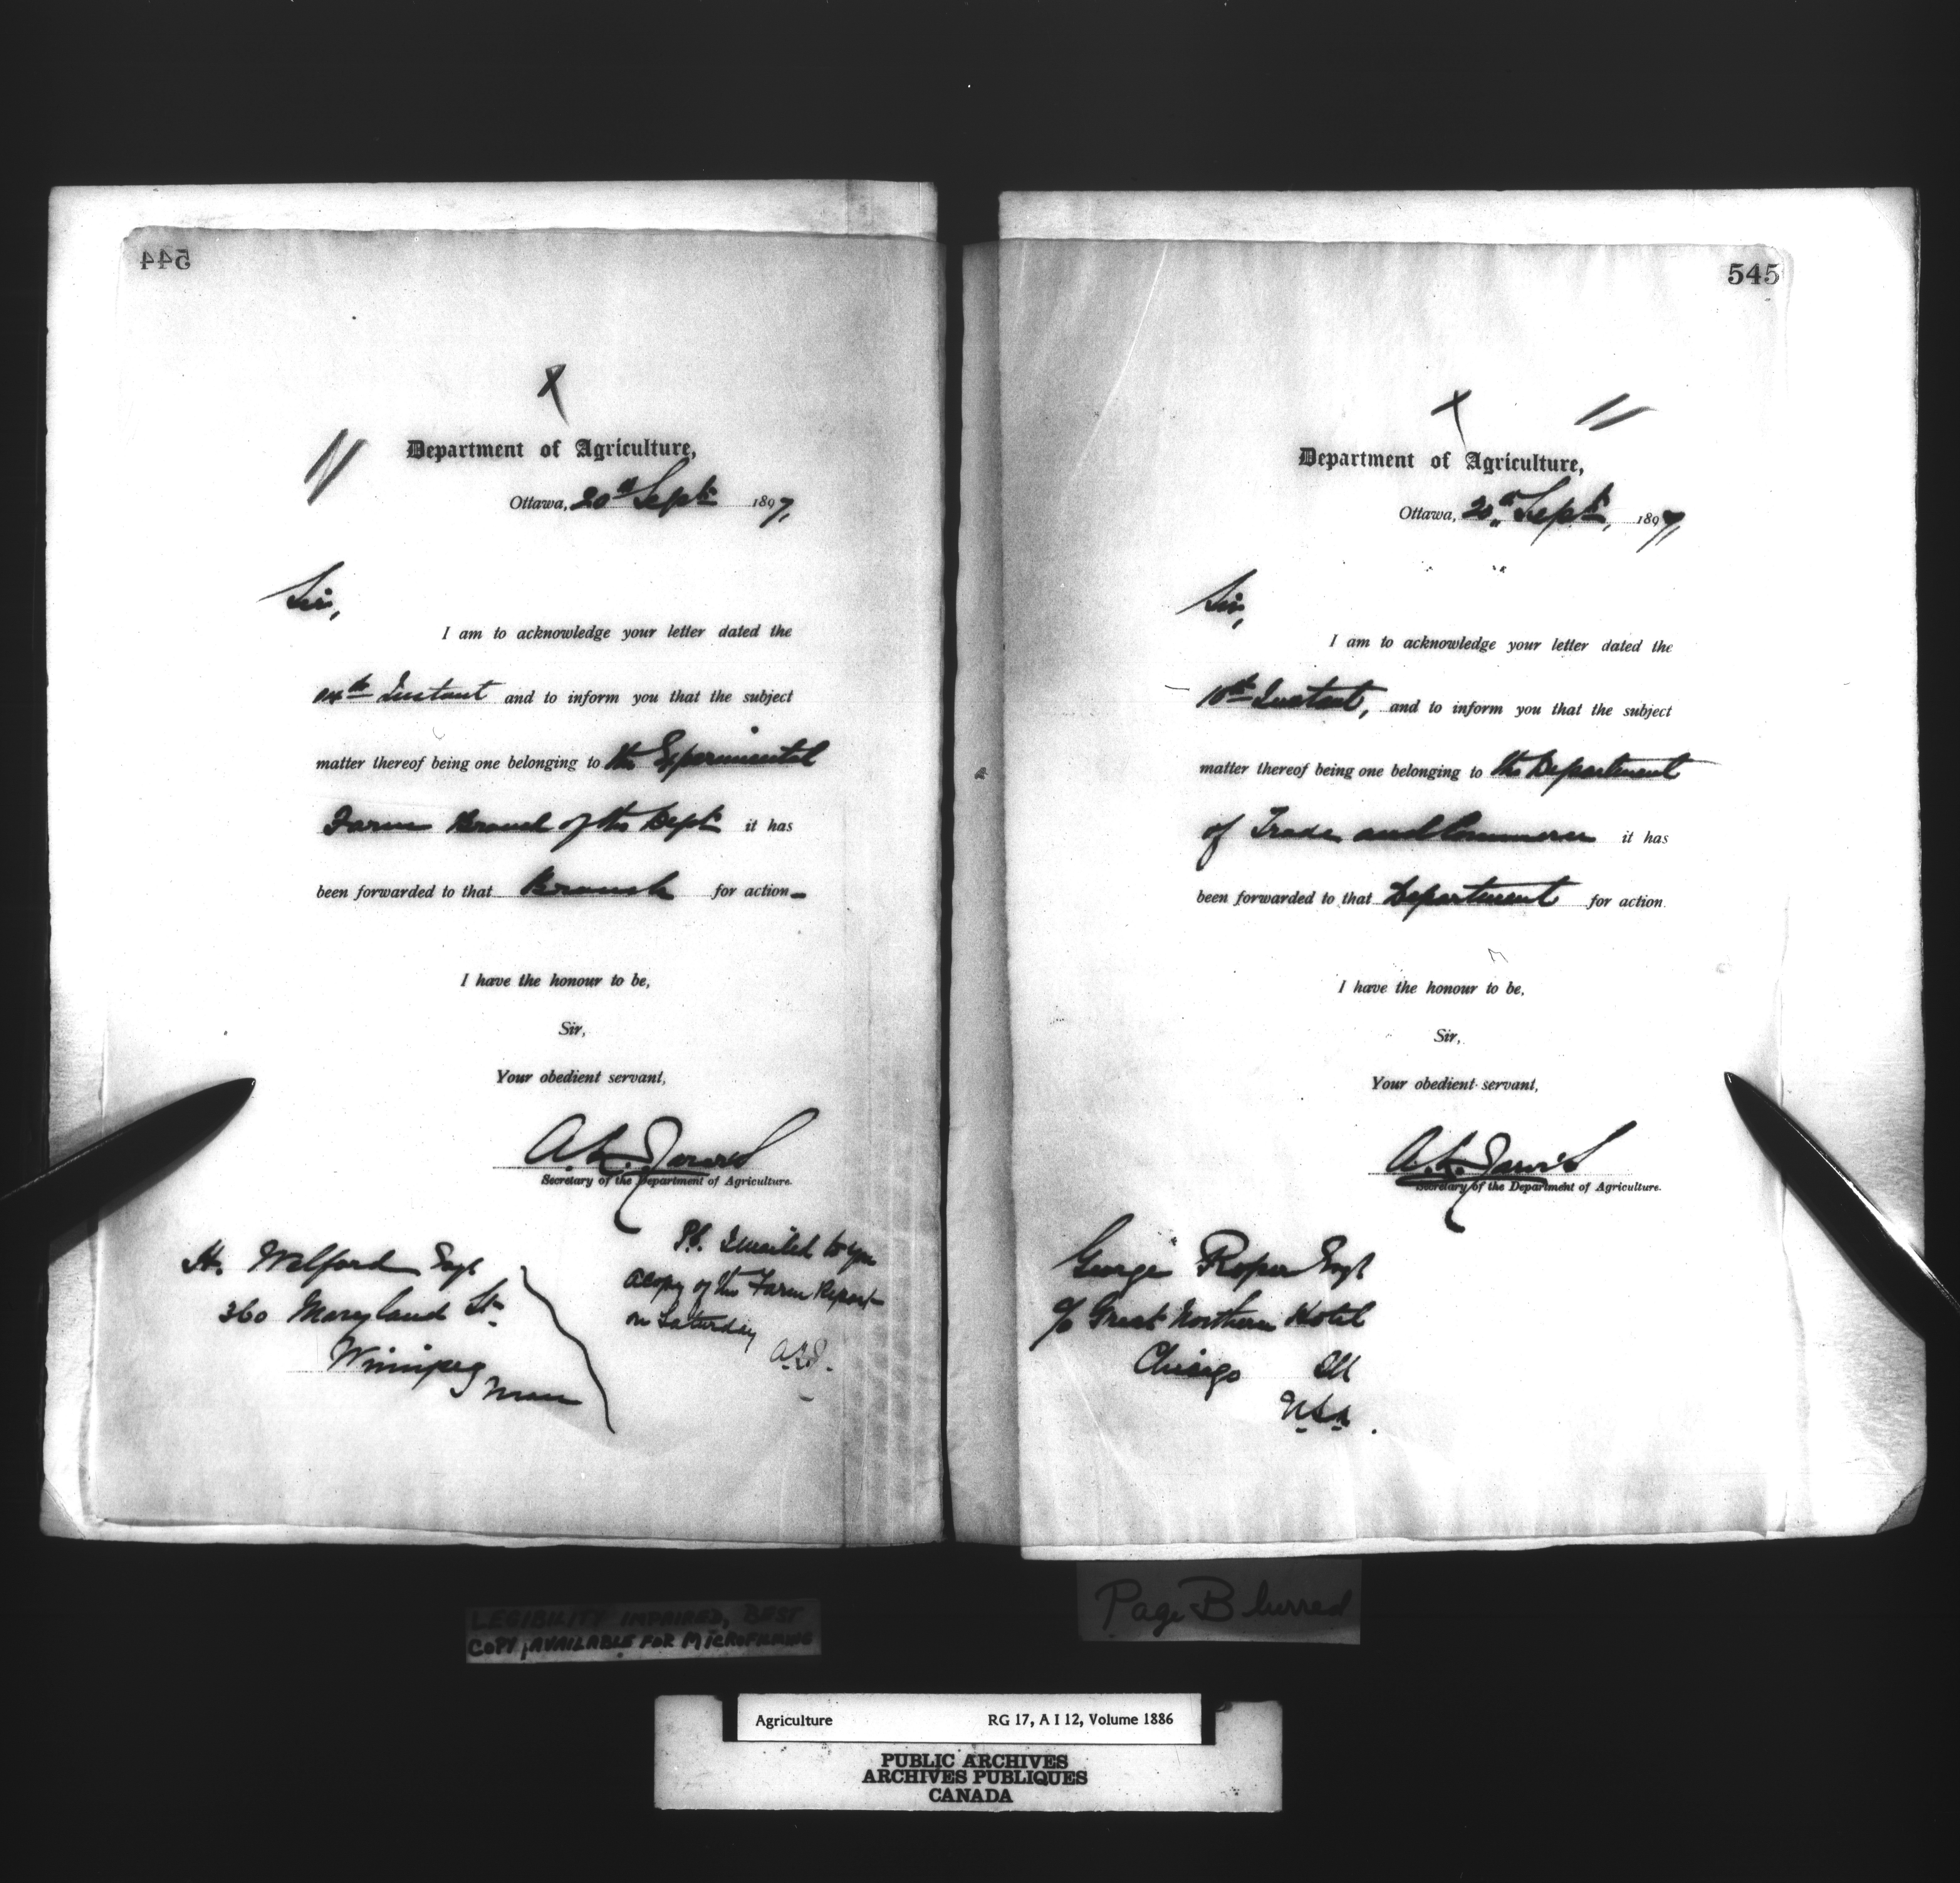 544
Department of Agriculture,
Ottawa, 20th Sept. 1897,
Sir,
I am to acknowledge your letter dated the
14th Instant and to inform you that the subject
matter thereof being one belonging to the Experimental
Farm Branch of the Dept. it has
been forwarded to that Branch for action
I have the honour to be,
Sir,
Your obedient servant,
A. L. Jarvis
Secretary of the Department of Agriculture.
H. Welford Esq.
360 Maryland St.
Winnipeg
Man
P.S. I mailed to you
a copy of the Farm Report
on Saturday
A.L.J.
545
Department of Agriculture,
Ottawa, 20th Sept., 1897
Sir,
I am to acknowledge your letter dated the
10th Instant, and to inform you that the subject
matter thereof being one belonging to the Department
of Trade and Commerce it has
been forwarded to that Department for action
I have the honour to be,
Sir,
Your obedient servant,
A. L. Jarvis
Secretary of the Department of Agriculture.
George Roper Esq.
c/o Great Northern Hotel
Chicago Ill
U.S.A.
LEGIBILITY IMPAIRED, BEST
COPY AVAILABLE FOR MICROFILMING
Page Blurred
Agriculture RG 17, A I 12, Volume 1886
PUBLIC ARCHIVES
ARCHIVES PUBLIQUES
CANADA